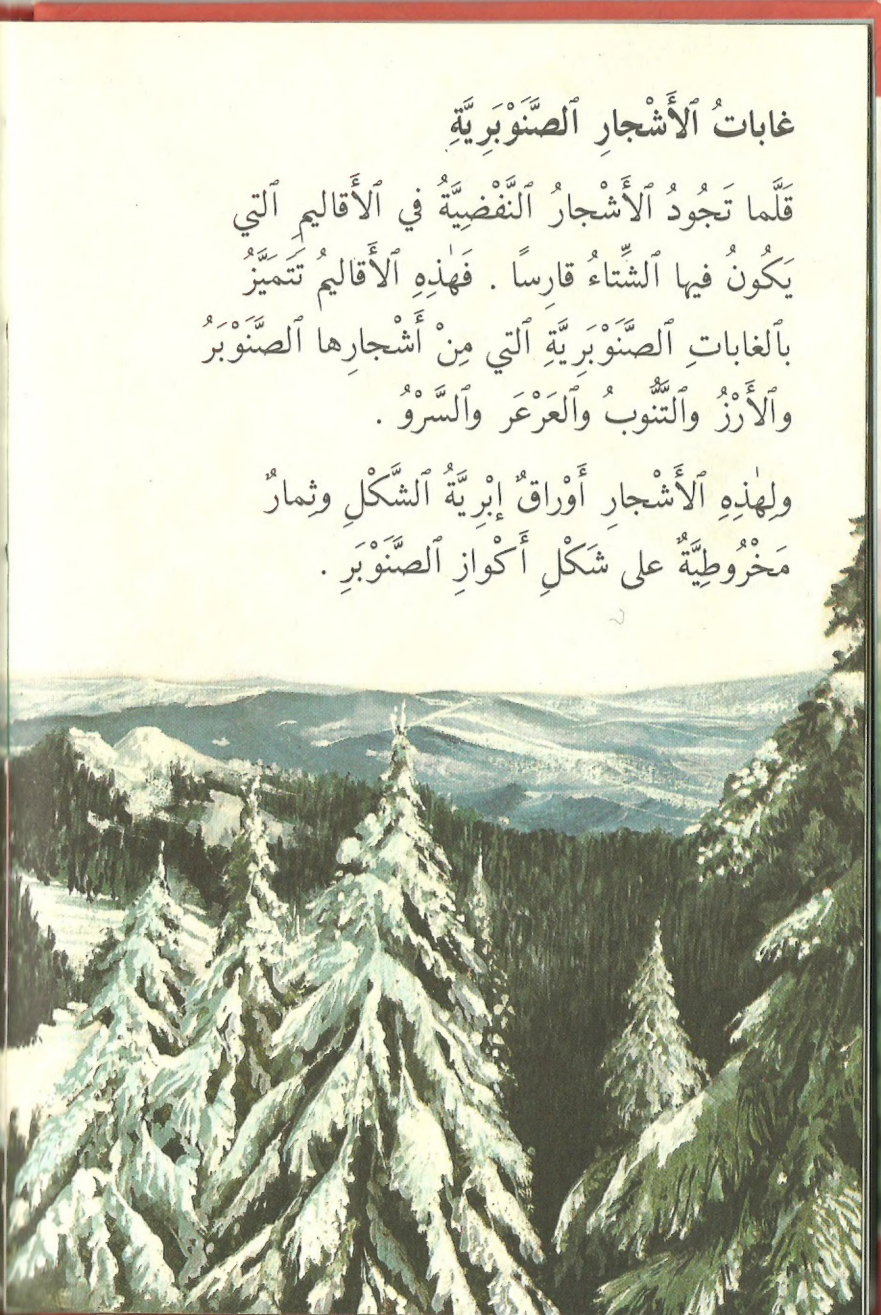 غاباتُ ٱلأَشْجارِ ٱلصَّنَوْبَرِيَّةِ
قَلَّما تَجُودُ ٱلأَشْجارُ ٱلنَّفْضِيَّةُ في ٱلأَقاليمِ ٱلتي
يَكُونُ فيها ٱلشِّتاءُ قارِسًا . فَهٰذِهِ ٱلأَقاليمُ تَتَمَيَّزُ
بٱلغاباتِ ٱلصَّنَوْبَرِيَّةِ ٱلتي مِنْ أَشْجارِها ٱلصَّنَوْبَرُ
وٱلأَرْزُ وٱلتَّنُّوبُ وٱلعَرْعَر وٱلسَّرْوُ .
ولِهٰذِهِ ٱلأَشْجارِ أَوْراقٌ إبْرِيَّةُ ٱلشَّكْلِ وثِمارٌ
مَخْرُوطِيَّةٌ على شَكْلِ أَكْوازِ ٱلصَّنَوْبَرِ .